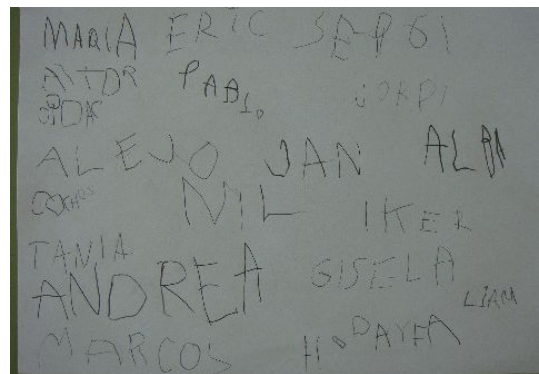 MARIA ERIC SERGI
AITOR PABLO JORDI
ALEJO JAN ALBA
NIL IKER
TANIA GISELA
ANDREA LIAM
MARCOS HODAYFA